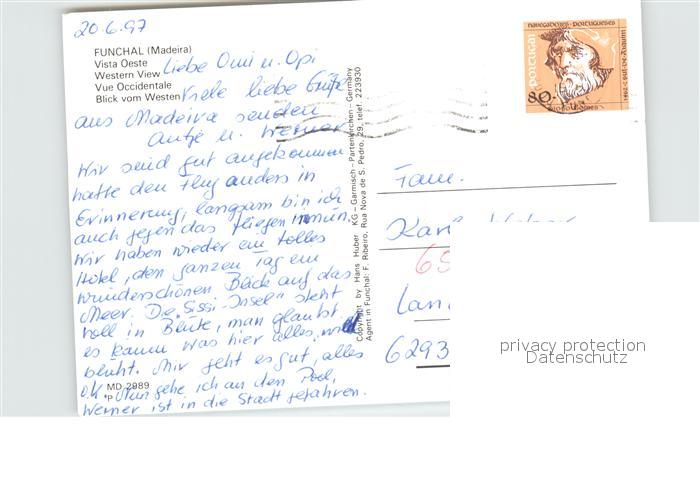 20.6.97
FUNCHAL (Madeira)
Vista Oeste
Western View
Vue Occidentale
Blick vom Westen
Liebe Omi u. Opi
Viele liebe Grüße
aus Madeira senden
Antje u. Werner
Wir sind gut angekommen
hatte den Flug anders in
Erinnerung, langsam bin ich
auch gegen das fliegen immun.
Wir haben wieder ein tolles
Hotel, den ganzen Tag ein
wunderschönen Blick auf das
Meer. Die "Sissi-Insel" steht
voll in Blüte, man glaubt
es kaum was hier alles
blüht. Mir geht es gut, alles
o.k. Nun gehe ich an den Pool,
Werner ist in die Stadt gefahren.
MD 2989
*P
Copyright by Hans Huber KG - Garmisch-Partenkirchen - Germany
Agent in Funchal: F. Ribeiro, Rua Nova de S. Pedro, 29, telef. 223930
NAVEGADORES PORTUGUESES
PORTUGAL
80.
Fam.
Karl
65
Lan
6293
privacy protection
Datenschutz